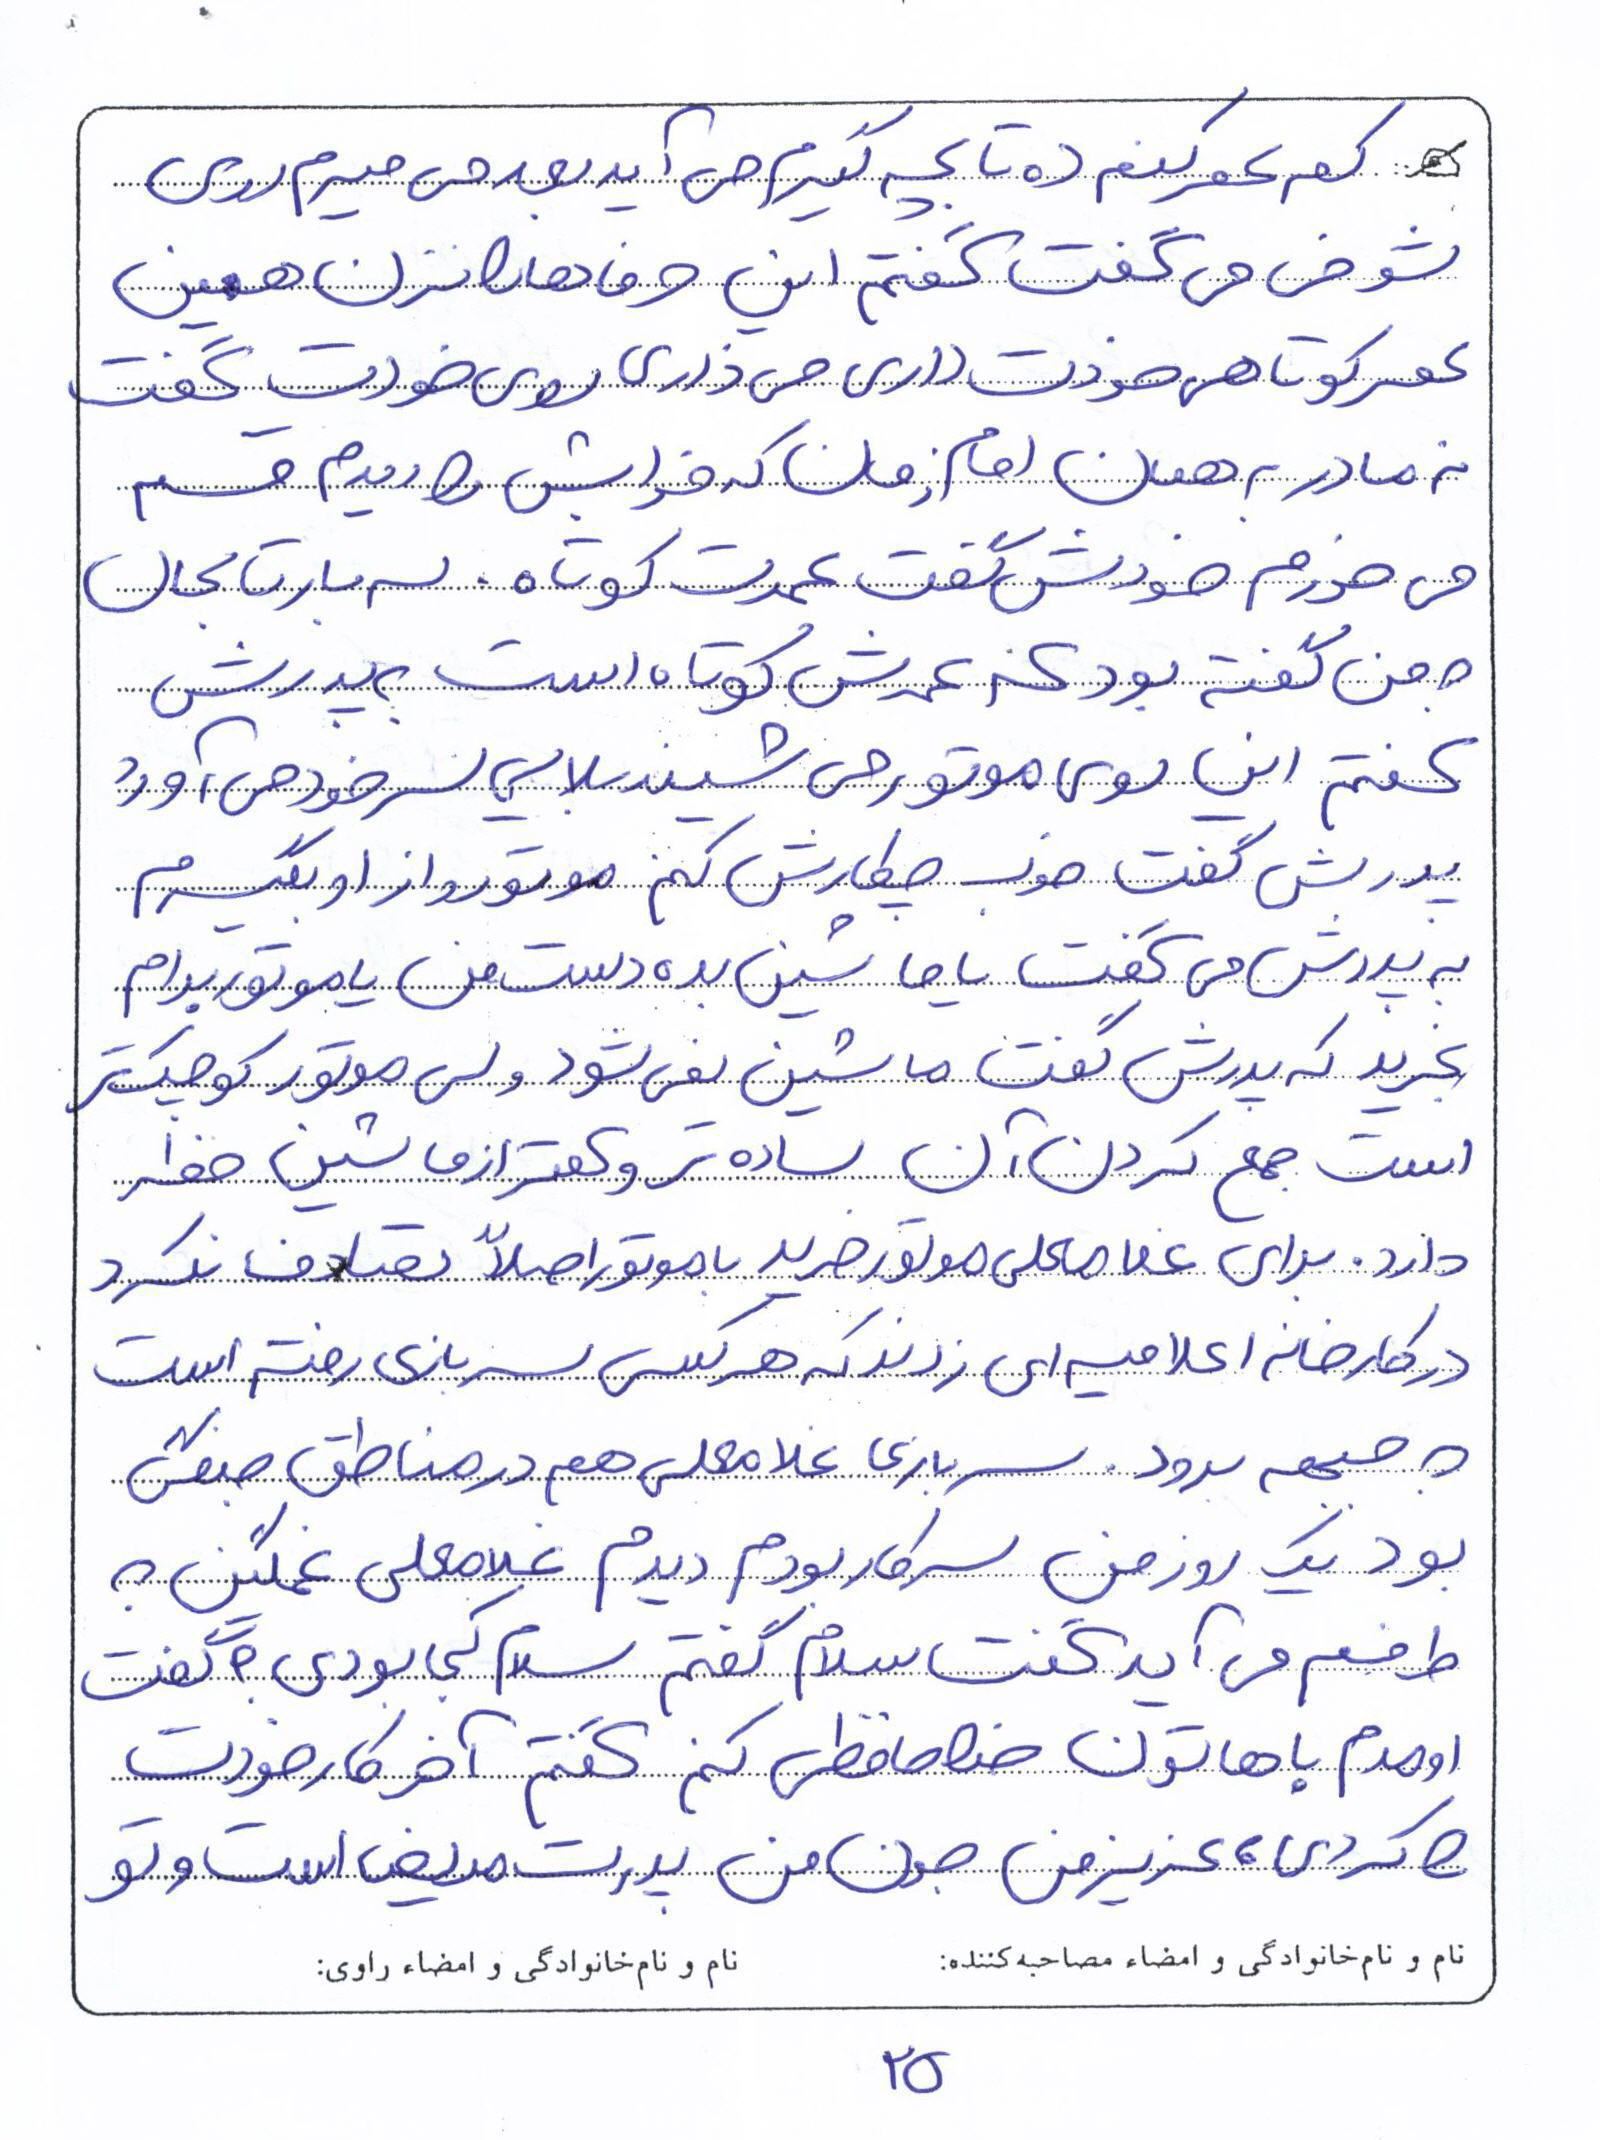 کم عمر کنم ده تا بچه گیرم می آید بعد می میرم روی
شوخی می گفت گفتم این حرفها را نزن همین
عمر کوتاهی خودت داری می ذاری روی خودت گفت
نه مادر به همان امام زمان که خوابش را دیدم قسم
می خورم خودش گفت عمرت کوتاه. سه بار تا بحال
به من گفته بود که عمرش کوتاه است به پدرش
گفتم این روی موتور می شیند بلایی سر خود می آورد
پدرش گفت خوب چکارش کنم موتور و از او بگیرم
به پدرش می گفت یا ماشین بده دست من یا موتور برام
بخرید که پدرش گفت ماشین نمی شود ولی موتور کوچیکتر
است جمع کردن آن ساده تر و کمتر از ماشین خطر
دارد. برای غلامعلی موتور خرید با موتور اصلاً تصادف نکرد
در کارخانه اعلامیه ای زدند که هر کس سربازی رفته است
به جبهه برود. سربازی غلامعلی هم در مناطق جنگی
بود یک روز من سر کار بودم دیدم غلامعلی غمگین به
طرفم می آید گفت سلام گفتم سلام کجا بودی؟ گفت
اومدم باهاتون خداحافظی کنم گفتم آخر کار خودت
را کردی، عزیز من جون من پدرت مریض است و تو
نام و نام‌خانوادگی و امضاء مصاحبه‌کننده:
نام و نام‌خانوادگی و امضاء راوی:
۲۵